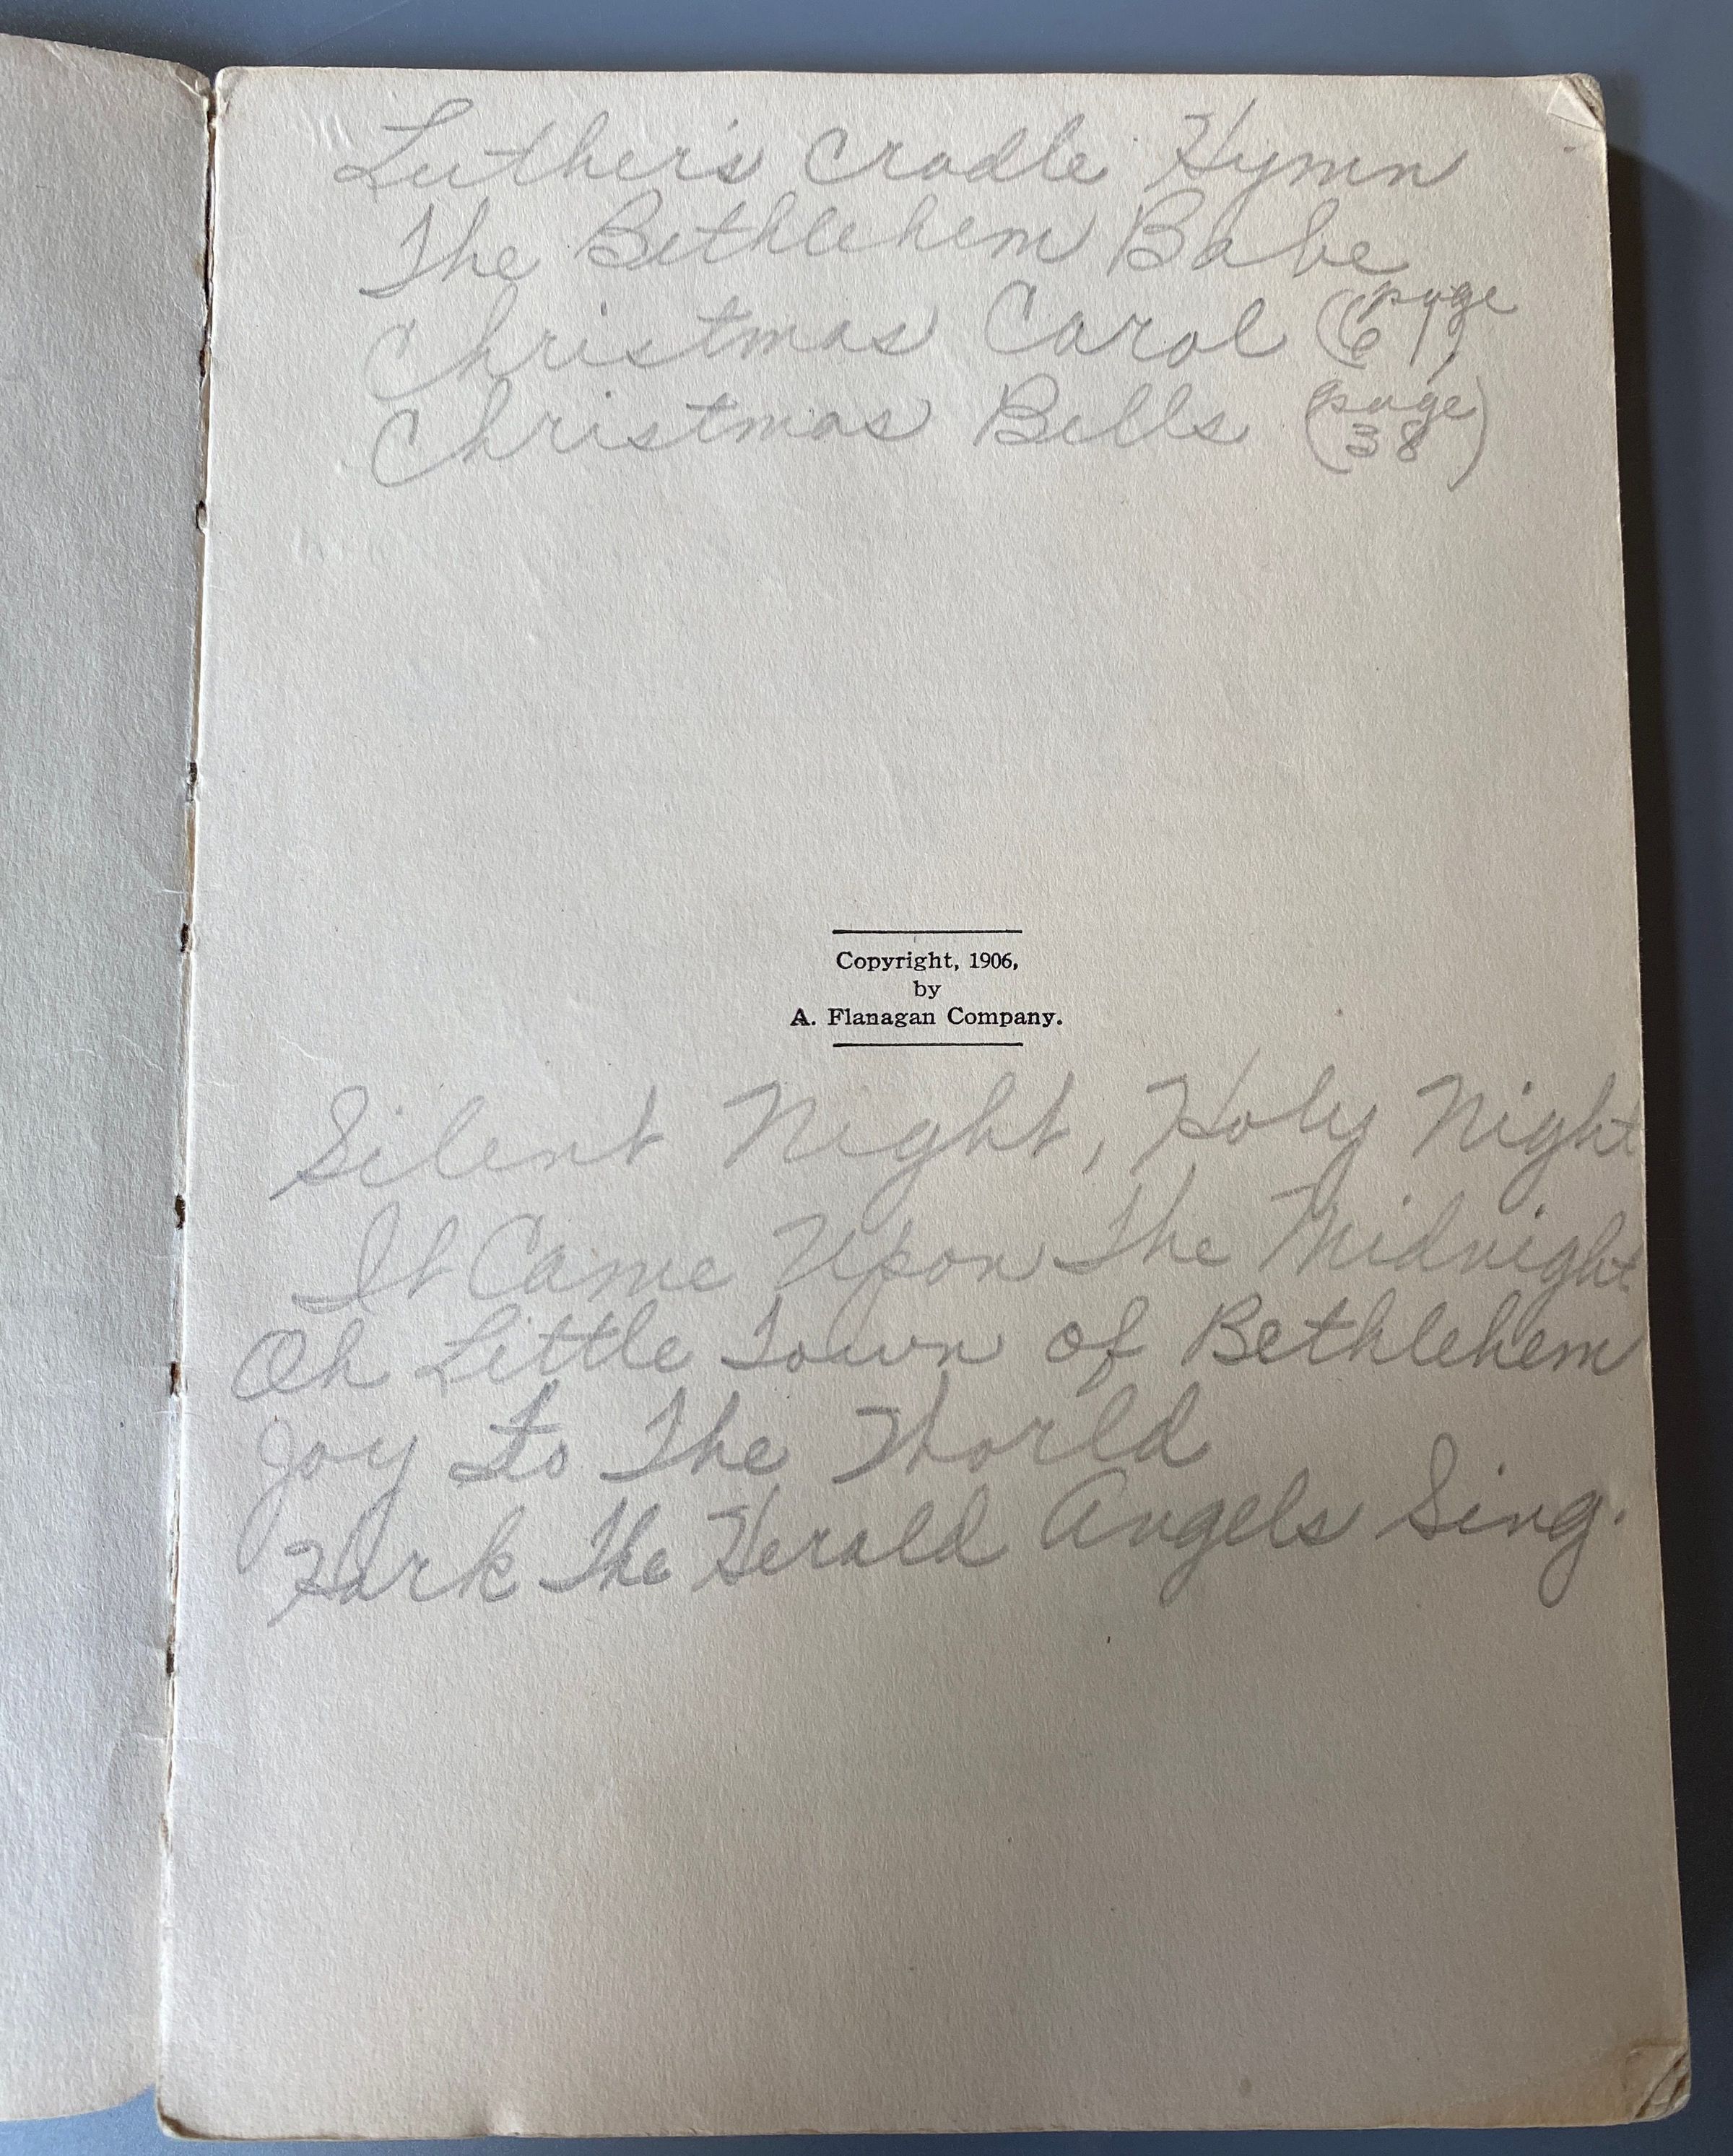 Luther's Cradle Hymn
The Bethlehem Babe
Christmas Carol (page 61)
Christmas Bells (page 38)
Copyright, 1906,
by
A. Flanagan Company.
Silent Night, Holy Night
It Came Upon The Midnight
Oh Little Town of Bethlehem
Joy to The World
Hark The Herald Angels Sing.